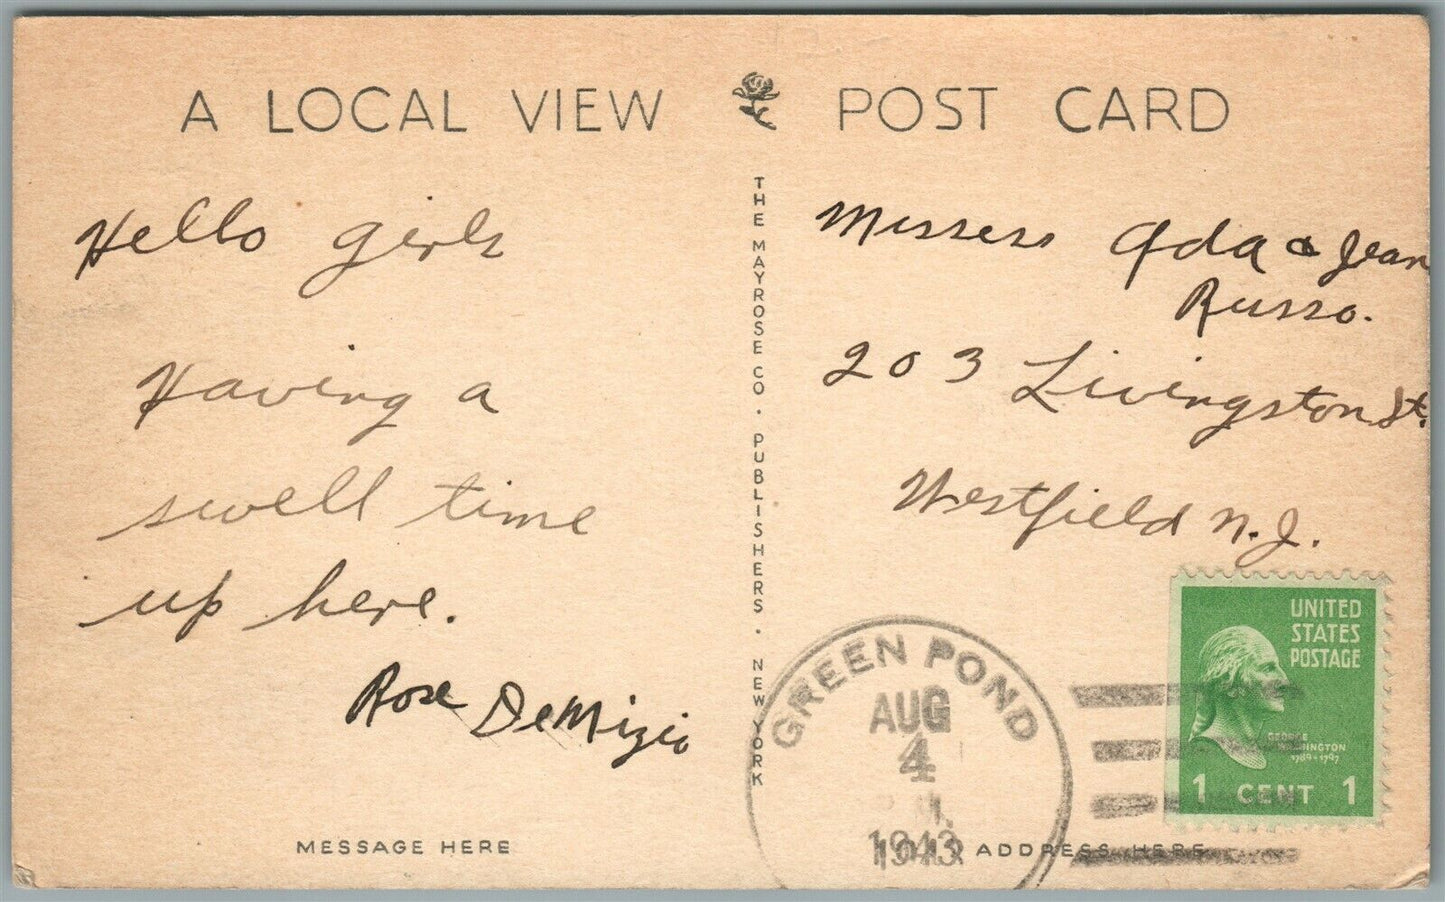 A LOCAL VIEW POST CARD
Hello girls
Having a
swell time
up here.
Rose DeMizio
MESSAGE HERE
THE MAYROSE CO. PUBLISHERS. NEW YORK
Misses Ada & Jean
Russo.
203 Livingston St.
Westfield N.J.
UNITED
STATES
POSTAGE
GEORGE
WASHINGTON
1789-1797
1 CENT 1
GREEN POND
AUG
4
1943
ADDRESS HERE